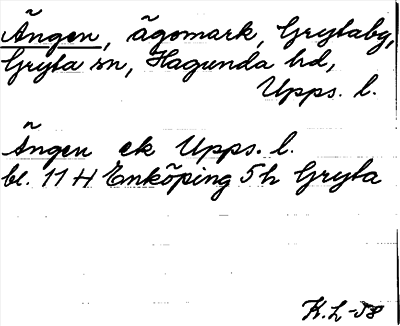 Ängen, ägomark, Grytaby,
Gryta sn, Hagunda hd,
Upps. l.
Ängen ek Upps. l.
bl. 11 H Enköping 5 h Gryta
K.L-58